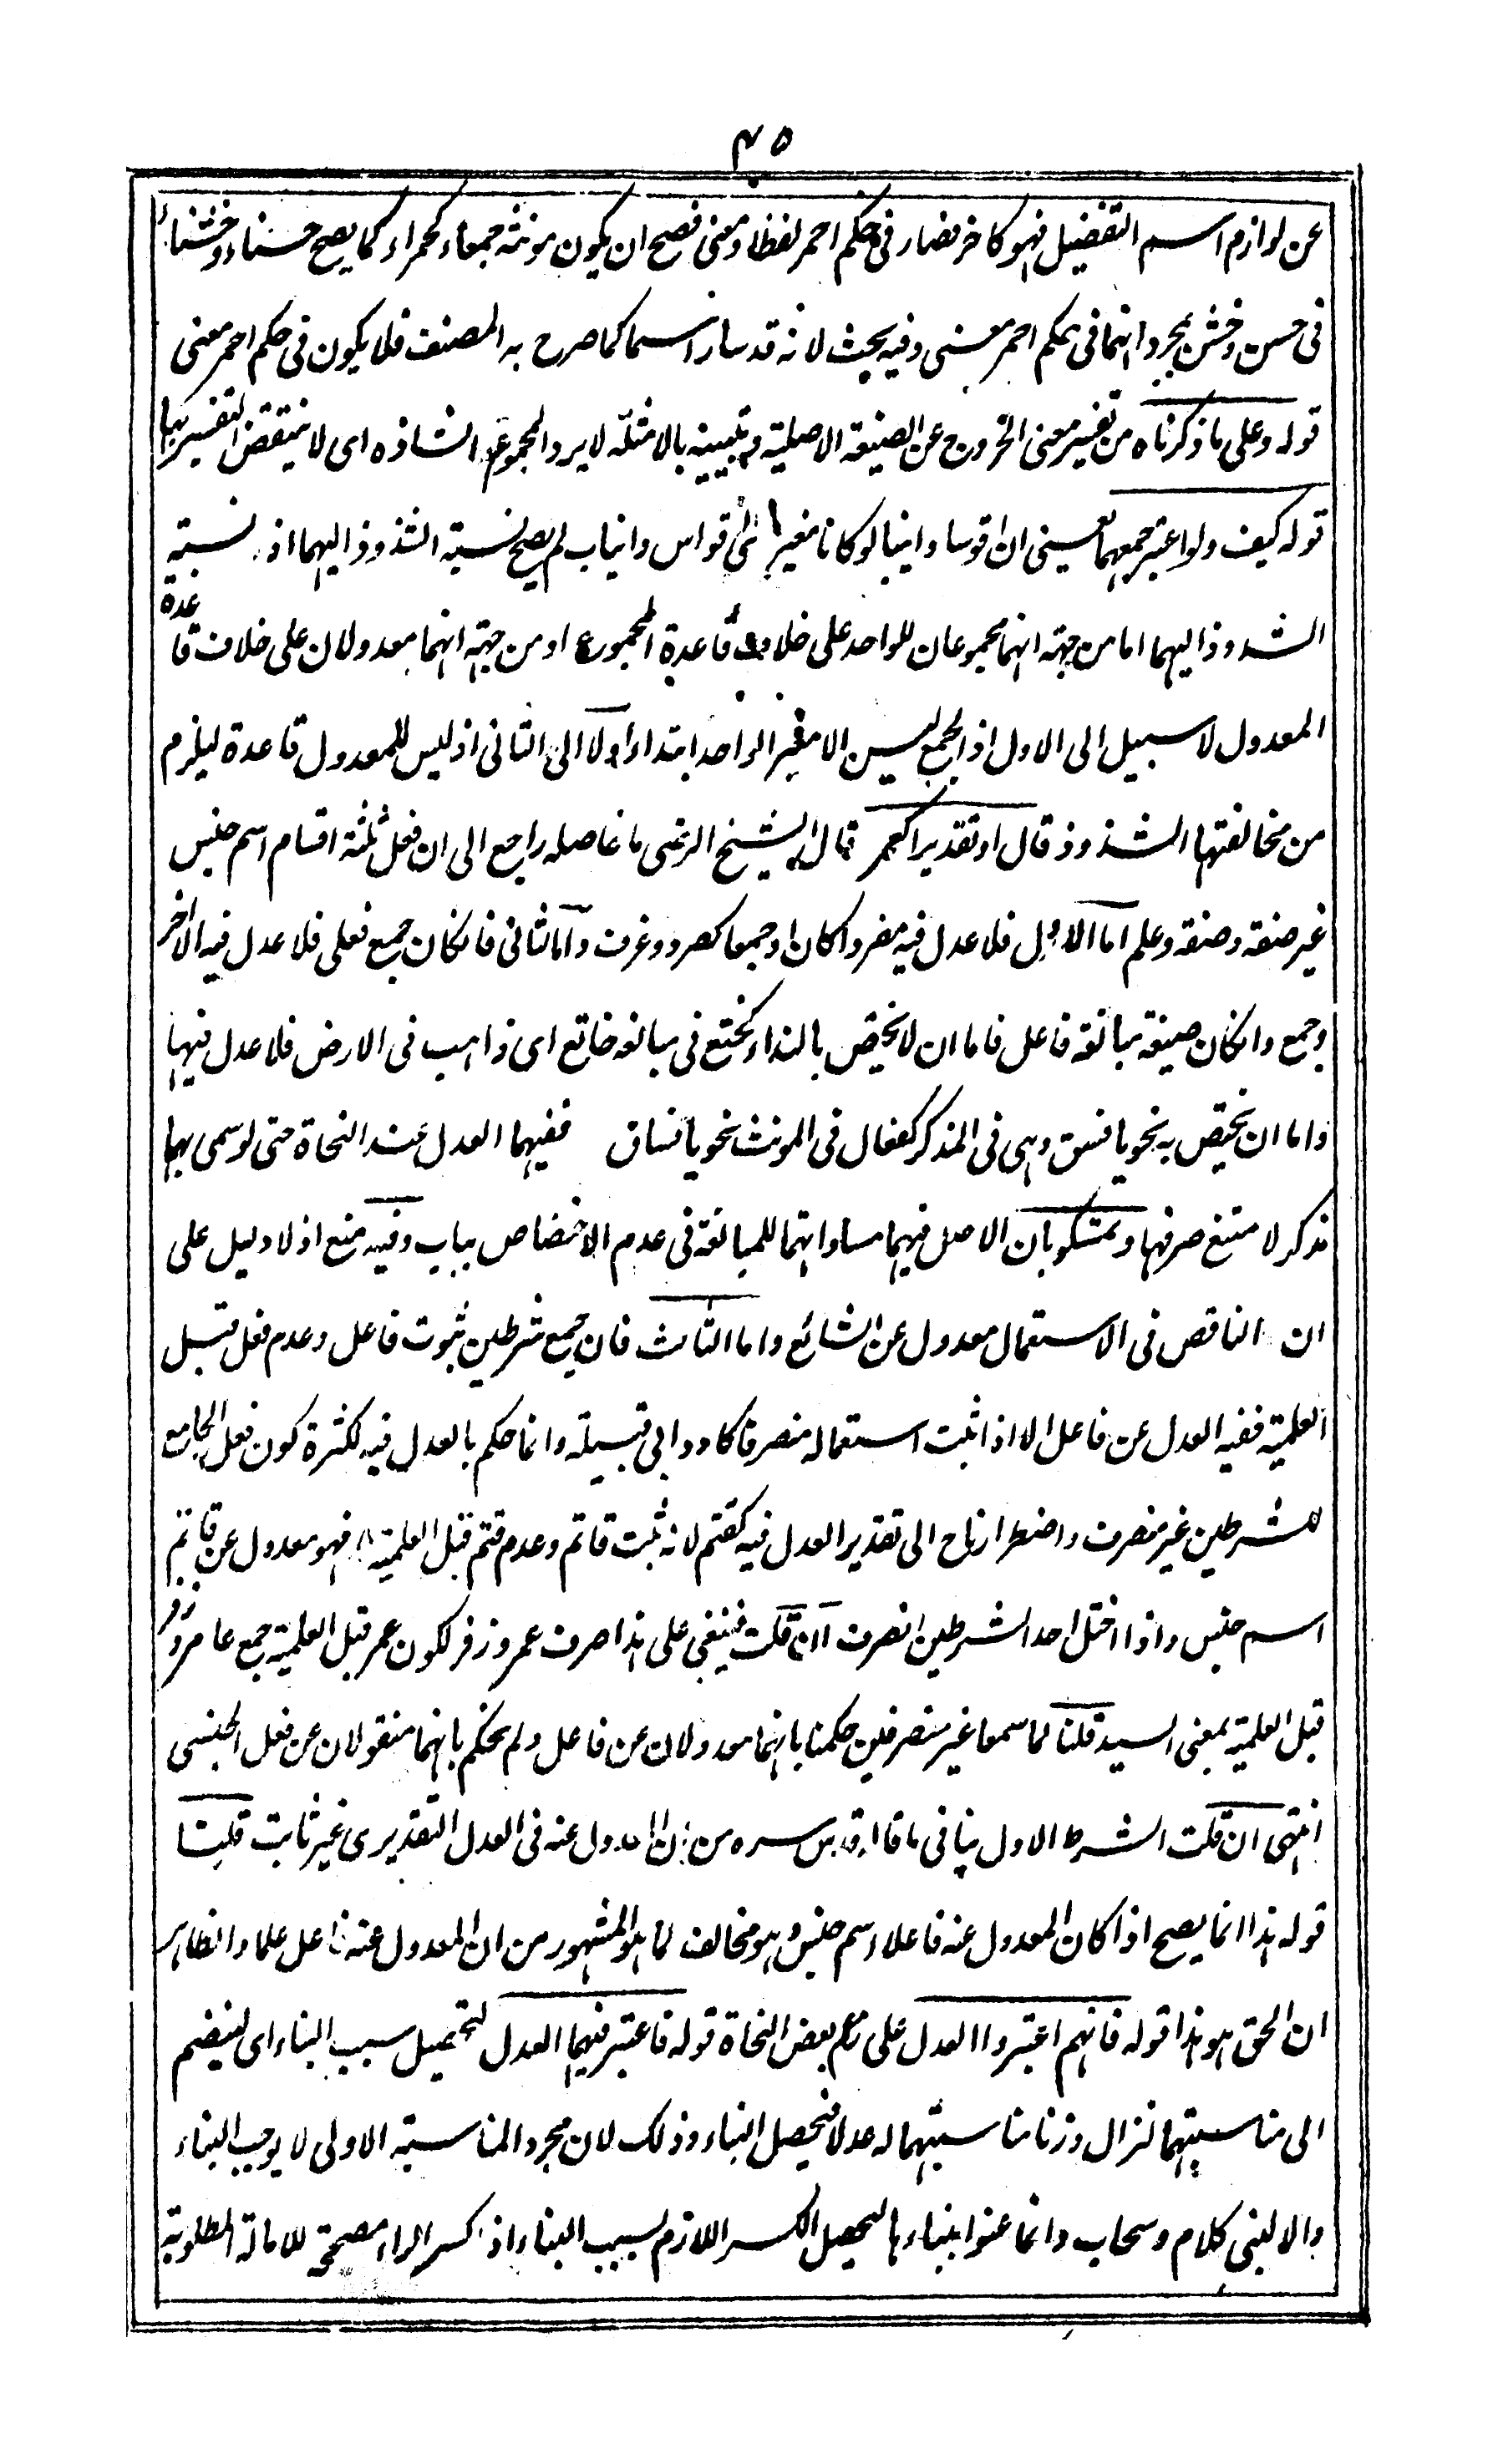 ٤٥
عن لوازم اسم التفضيل فهو كاخر فصار فى حكم احمر لفظا ومعنى فصح ان يكون مونثه جمعاء كحمراء كما يصح حسناء وخشناء
فى حسن وخشن بمجرد انهما فى حكم احمر معنى وفيه بحث لانه قد سار اسما كما صرح به المصنف فلا يكون فى حكم احمر معنى
قوله وعلى ما ذكرناه من تفسير معنى الخروج عن الصيغة الاصلية وتبيينه بالامثلة لا يرد الجموع الشاذه اى لا ينتقض التفسير بها
قوله كيف ولو اعتبر جمعهما يعنى ان اقوسا وانيبا لو كانا مغيرى اقواس وانياب لم يصح نسبة الشذوذ اليهما اذ نسبة
الشذوذ اليهما اما من جهة انهما مجموعان للواحد على خلاف قاعدة الجموع او من جهة انهما معدولان على خلاف قاعدة
المعدول لا سبيل الى الاول اذ الجمع ليس الا مغير الواحد ابتداء ولا الى الثانى اذ ليس للمعدول قاعدة ليلزم
من مخالفتها الشذوذ قال او تقديرا كعمر قال الشيخ الرضى ما حاصله راجع الى ان فعل ثلثة اقسام اسم جنس
غير صفة وصفة وعلم اما الاول فلا عدل فيه مفردا كان او جمعا كصرد وغرف واما الثانى فان كان جمع فعلى فلا عدل فيه الا اخر
وجمع وان كان صيغة مبالغة فاعل فاما ان لا يختص بالنداء كختع فى مبالغة خاتع اى ذاهب فى الارض فلا عدل فيها
واما ان يختص به نحو يا فسق وهى فى المذكر كفعال فى المونث نحو يا فساق ففيهما العدل عند النحاة حتى لو سمى بها
مذكر لامتنع صرفها وتمسكوا بان الاصل فيهما مساواتهما للمبالغة فى عدم الاختصاص بباب وفيه منع اذ لا دليل على
ان الناقص فى الاستعمال معدول عن الشائع واما الثالث فان جمع شرطين ثبوت فاعل وعدم فعل قبل
العلمية ففيه العدل عن فاعل الا اذا ثبت استعماله منصرفا كادد ابى قبيلة وانما حكم بالعدل فيه لكثرة كون فعل الجامع
للشرطين غير منصرف واضطرارنا ح الى تقدير العدل فيه كقثم لانه ثبت قاثم وعدم قثم قبل العلمية فهو معدول عن قاثم
اسم جنس واذا اختل احد الشرطين انصرف ان قلت فينبغى على هذا صرف عمر وزفر لكون عمر قبل العلمية جمع عامر وزفر
قبل العلمية بمعنى السيد قلنا لما سمعا غير منصرفين حكمنا بانهما معدولان عن فاعل ولم نحكم بانهما منقولان عن فعل الجنسى
انتهى ان قلت الشرط الاول ينافى ما قال قدس سره من ان المعدول عنه فى العدل التقديرى غير ثابت قلنا
قوله هذا انما يصح اذا كان المعدول عنه فاعلا اسم جنس وهو مخالف لما هو المشهور من ان المعدول عنه فاعل علما والظاهر
ان الحق هو هذا قوله فانهم اعتبروا العدل على زعم بعض النحاة قوله فاعتبر فيهما العدل لتحصيل سبب البناء اى لينضم
الى مناسبتهما نزال وزنا مناسبتهما له عدلا فيحصل البناء وذلك لان مجرد المناسبة الاولى لا يوجب البناء
والا لبنى كلام وسحاب وانما عنوا ببناءها ليحصل الكسر اللازم بسبب البناء اذ كسر الراء مصحح للامالة المطلوبة